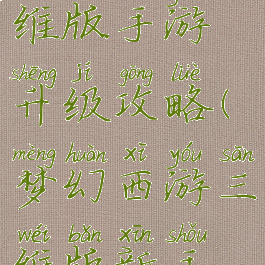 维版手游
shēng jí gōng lüè
升级攻略(
mèng huàn xī yóu sān
梦幻西游三
wéi bǎn xīn shǒu
维版新手